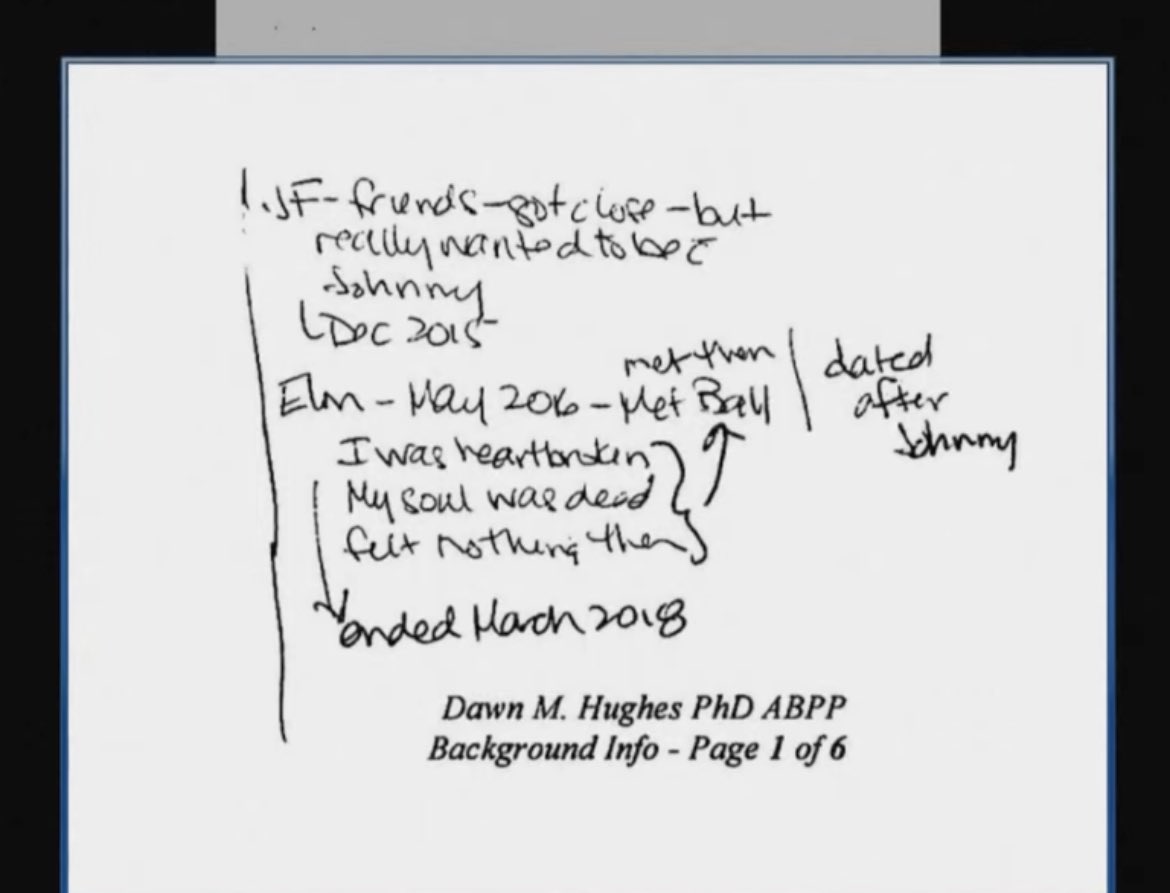 1. JF - friends - got close - but
really wanted to be c̄
Johnny
Dec 2015
met then
Elon - May 2016 - Met Ball | dated
after
Johnny
I was heartbroken
My soul was dead
felt nothing then
ended March 2018
Dawn M. Hughes PhD ABPP
Background Info - Page 1 of 6